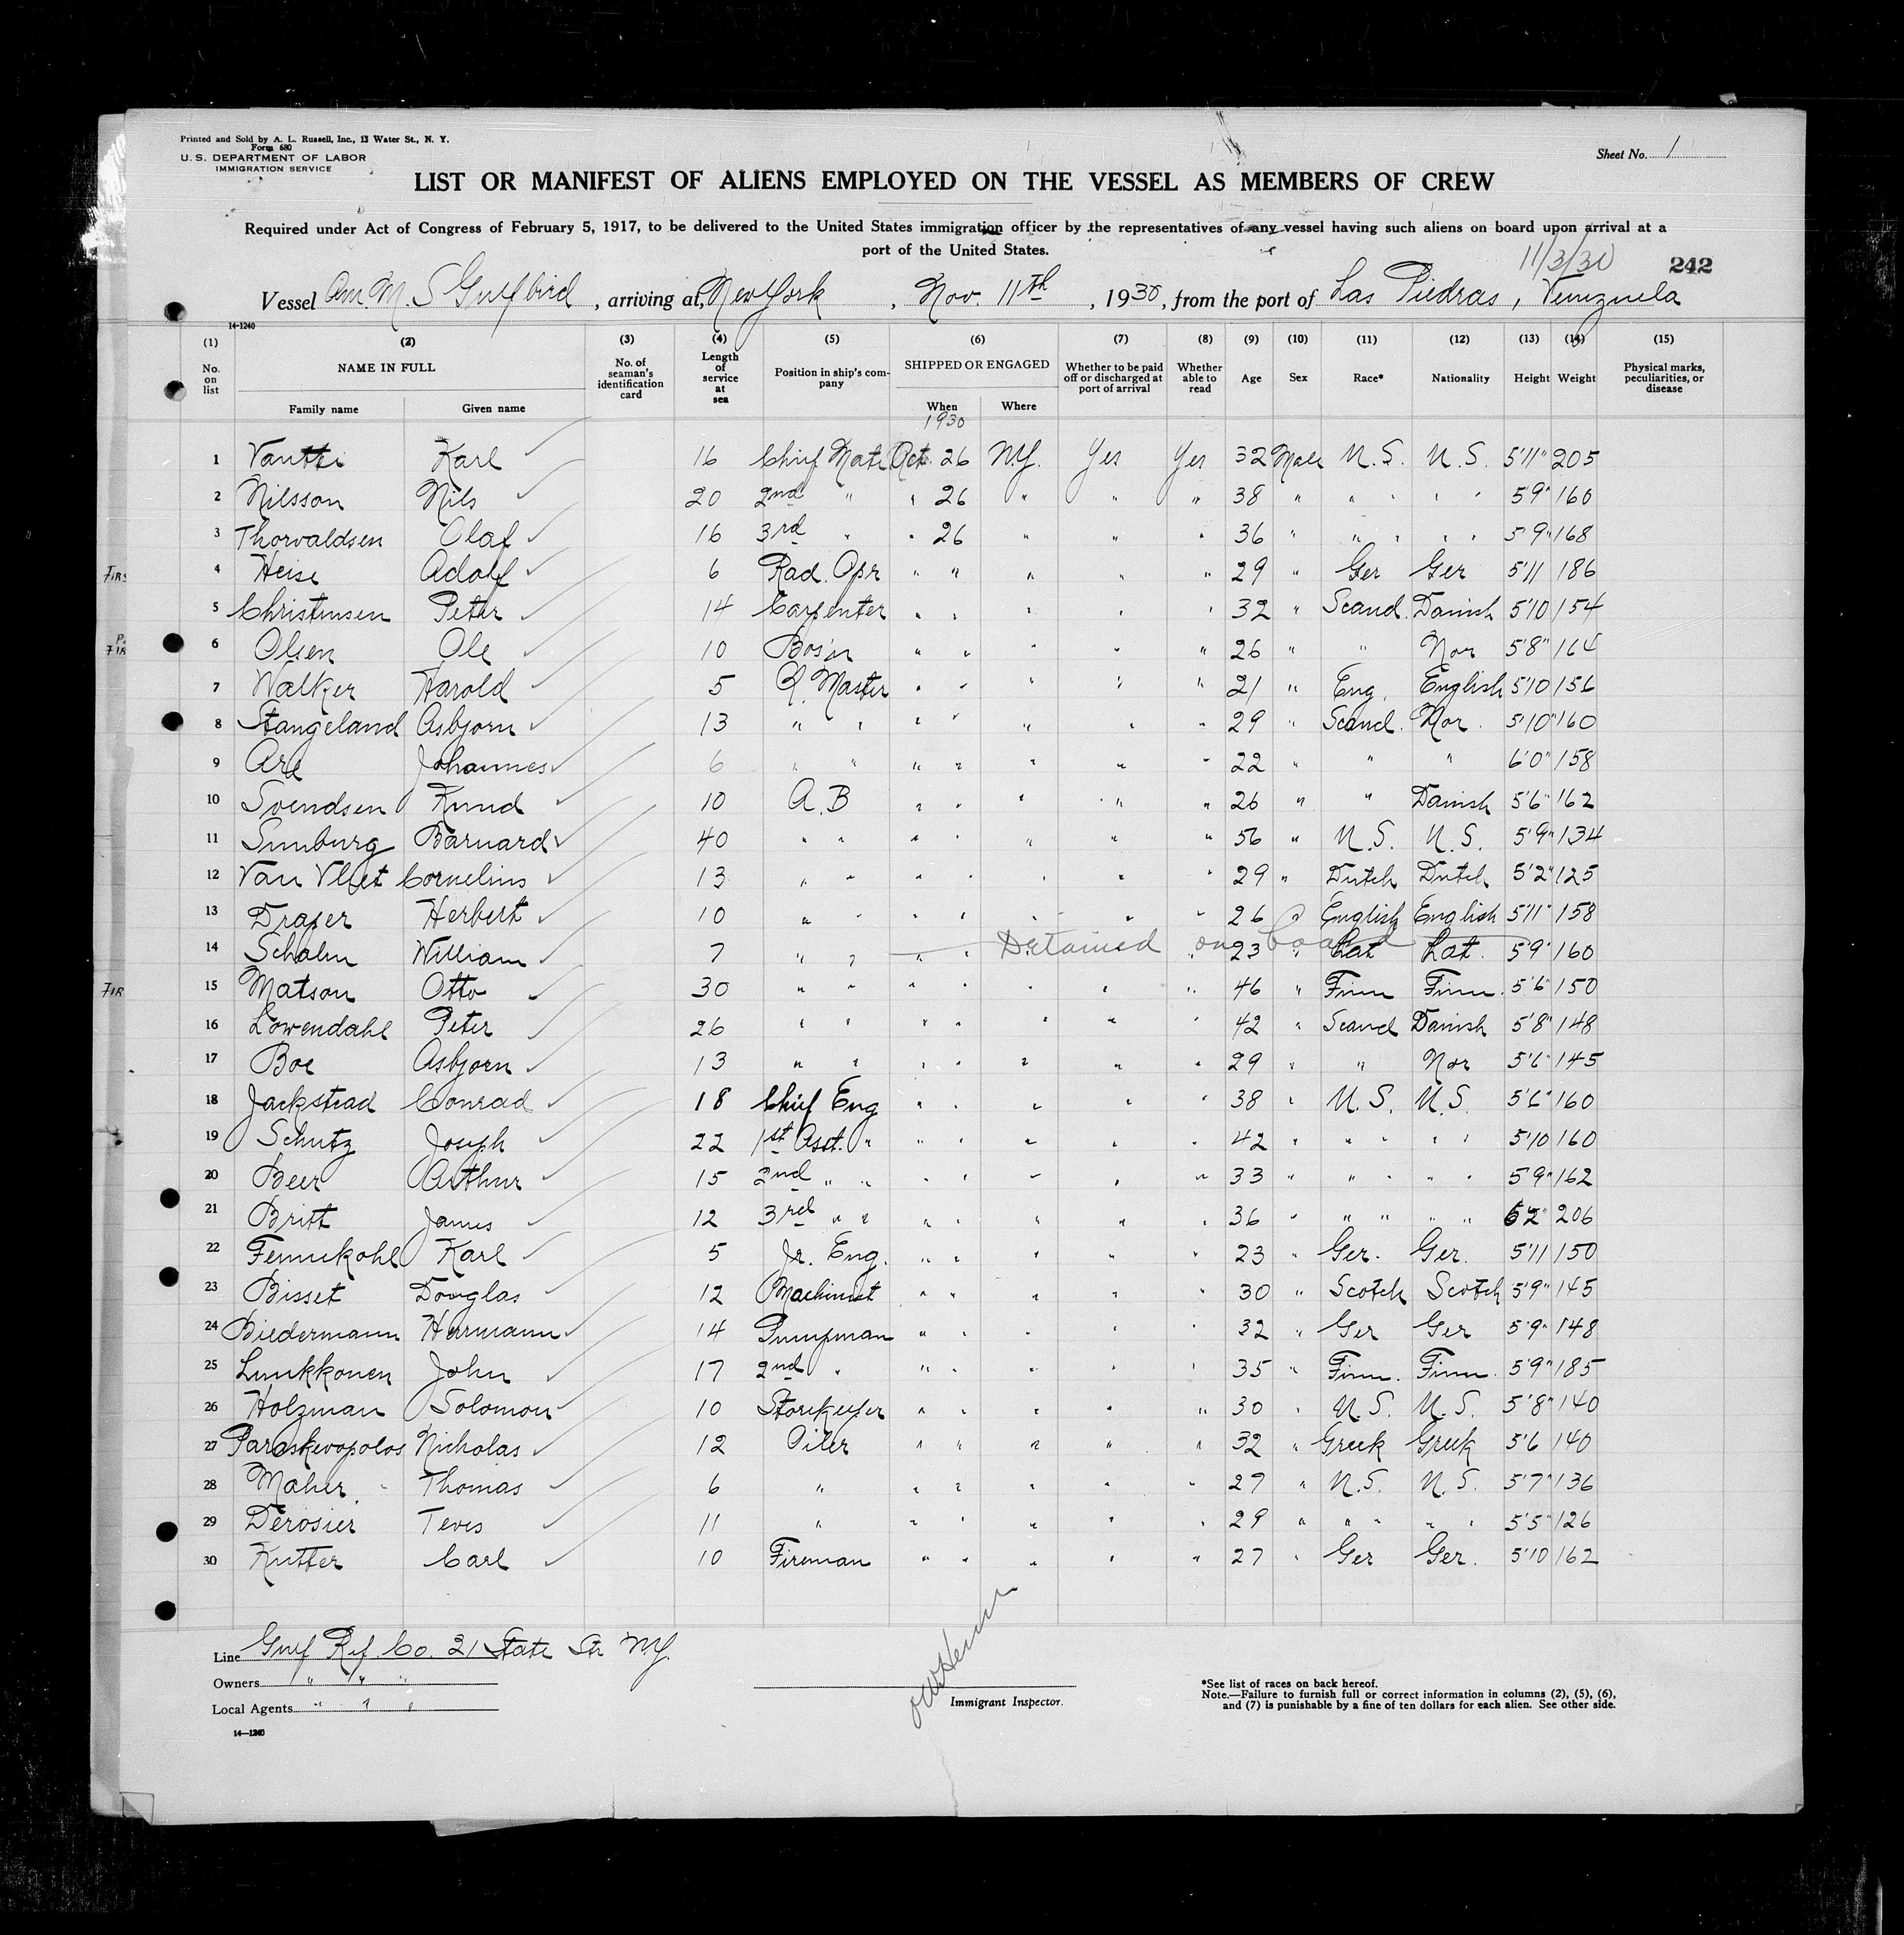 Printed and Sold by A. L. Russell, Inc., 13 Water St., N. Y.
Form 680
U. S. DEPARTMENT OF LABOR
IMMIGRATION SERVICE
Sheet No. 1
LIST OR MANIFEST OF ALIENS EMPLOYED ON THE VESSEL AS MEMBERS OF CREW
Required under Act of Congress of February 5, 1917, to be delivered to the United States immigration officer by the representatives of any vessel having such aliens on board upon arrival at a
port of the United States.
11/3/30 242
Vessel Am. M. S Gulfbird, arriving at New York, Nov. 11th, 1930, from the port of Las Piedras, Venezuela
14-1240
(1) (2) (3) (4) (5) (6) (7) (8) (9) (10) (11) (12) (13) (14) (15)
No. on list NAME IN FULL Family name Given name No. of seaman's identification card Length of service at sea Position in ship's company SHIPPED OR ENGAGED When Where Whether to be paid off or discharged at port of arrival Whether able to read Age Sex Race* Nationality Height Weight Physical marks, peculiarities, or disease
1930
1 Karl 16 Chief Mate Oct. 26 N.Y. Yes Yes 32 Male U.S. U.S. 5'11" 205
2 Nilsson Nils 20 2nd " " 26 " " " 38 " " " " " 5'9" 160
3 Thorvaldsen Olaf 16 3rd " " 26 " " " 36 " " " " " 5'9" 168
4 Heise Adolf 6 Rad. Opr " " " " " 29 " Ger Ger 5'11 186
5 Christensen Peter 14 Carpenter " " " " " 32 " Scand. Danish 5'10 154
6 Olsen Ole 10 Bos'n " " " " " 26 " " Nor 5'8" 164
7 Walker Harold 5 Q. Master " " " " " 21 " Eng. English 5'10 156
8 Stangeland Asbjorn 13 " " " " " " " 29 " Scand. Nor. 5'10" 160
9 Are Johannes 6 " " " " " " " 22 " " " 6'0" 158
10 Svendsen Knud 10 A.B " " " " " 26 " " Danish 5'6" 162
11 Sunburg Barnard 40 " " " " " " " 56 " U.S. U.S. 5'9" 134
12 Van Vliet Cornelius 13 " " " " " " " 29 " Dutch Dutch 5'2" 125
13 Draper Herbert 10 " " " " " " " 26 " English English 5'11" 158
14 Schalin William 7 " " " " Detained on board " 23 " Lat Lat. 5'9" 160
15 Matson Otto 30 " " " " " " " 46 " Finn Finn. 5'6" 150
16 Lowendahl Peter 26 " " " " " " " 42 " Scand Danish 5'8" 148
17 Boe Asbjorn 13 " " " " " " " 29 " " Nor 5'6" 145
18 Jackstead Conrad 18 Chief Eng " " " " " 38 " U.S. U.S. 5'6" 160
19 Schutz Joseph 22 1st Asst. " " " " " " 42 " " " " " 5'10 160
20 Beer Arthur 15 2nd " " " " " " " 33 " " " " " 5'9" 162
21 Britt James 12 3rd " " " " " " " 36 " " " " " 6'2" 206
22 Fennekohl Karl 5 Jr. Eng. " " " " " 23 " Ger. Ger. 5'11 150
23 Bisset Douglas 12 Machinist " " " " " 30 " Scotch Scotch 5'9" 145
24 Biedermann Hermann 14 Pumpman " " " " " 32 " Ger Ger 5'9" 148
25 Luukkonen John 17 2nd " " " " " " 35 " Finn. Finn. 5'9" 185
26 Holzman Solomon 10 Storekeeper " " " " " 30 " U.S. U.S. 5'8" 140
27 Paraskevopolos Nicholas 12 Oiler " " " " " 32 " Greek Greek 5'6 140
28 Maher Thomas 6 " " " " " " 27 " U.S. U.S. 5'7" 136
29 Derosier Teves 11 " " " " " " 29 " " " " " 5'5" 126
30 Kutter Carl 10 Fireman " " " " " 27 " Ger Ger. 5'10 162
Line Gulf Ref. Co. 21 State Str N.Y.
Owners " " "
Local Agents " " "
14—1240
Immigrant Inspector.
*See list of races on back hereof.
Note.—Failure to furnish full or correct information in columns (2), (5), (6),
and (7) is punishable by a fine of ten dollars for each alien. See other side.